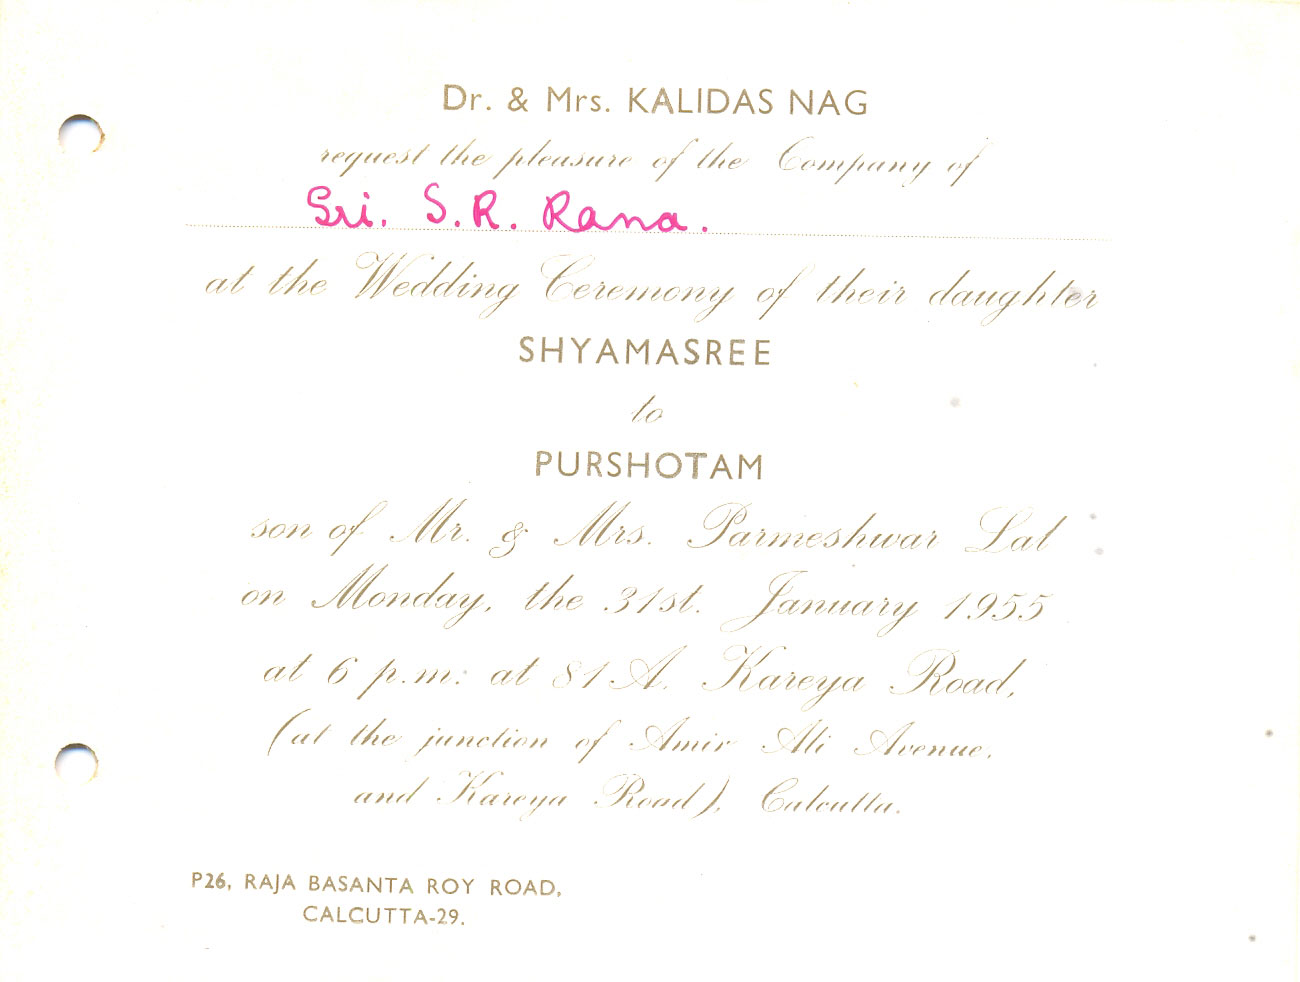 Dr. & Mrs. KALIDAS NAG
request the pleasure of the Company of
Sri. S. R. Rana.
at the Wedding Ceremony of their daughter
SHYAMASREE
to
PURSHOTAM
son of Mr. & Mrs. Parmeshwar Lal
on Monday, the 31st. January 1955
at 6 p.m: at 81 A. Kareya Road,
(at the junction of Amir Ali Avenue.
and Kareya Road), Calcutta.
P26, RAJA BASANTA ROY ROAD,
CALCUTTA-29.